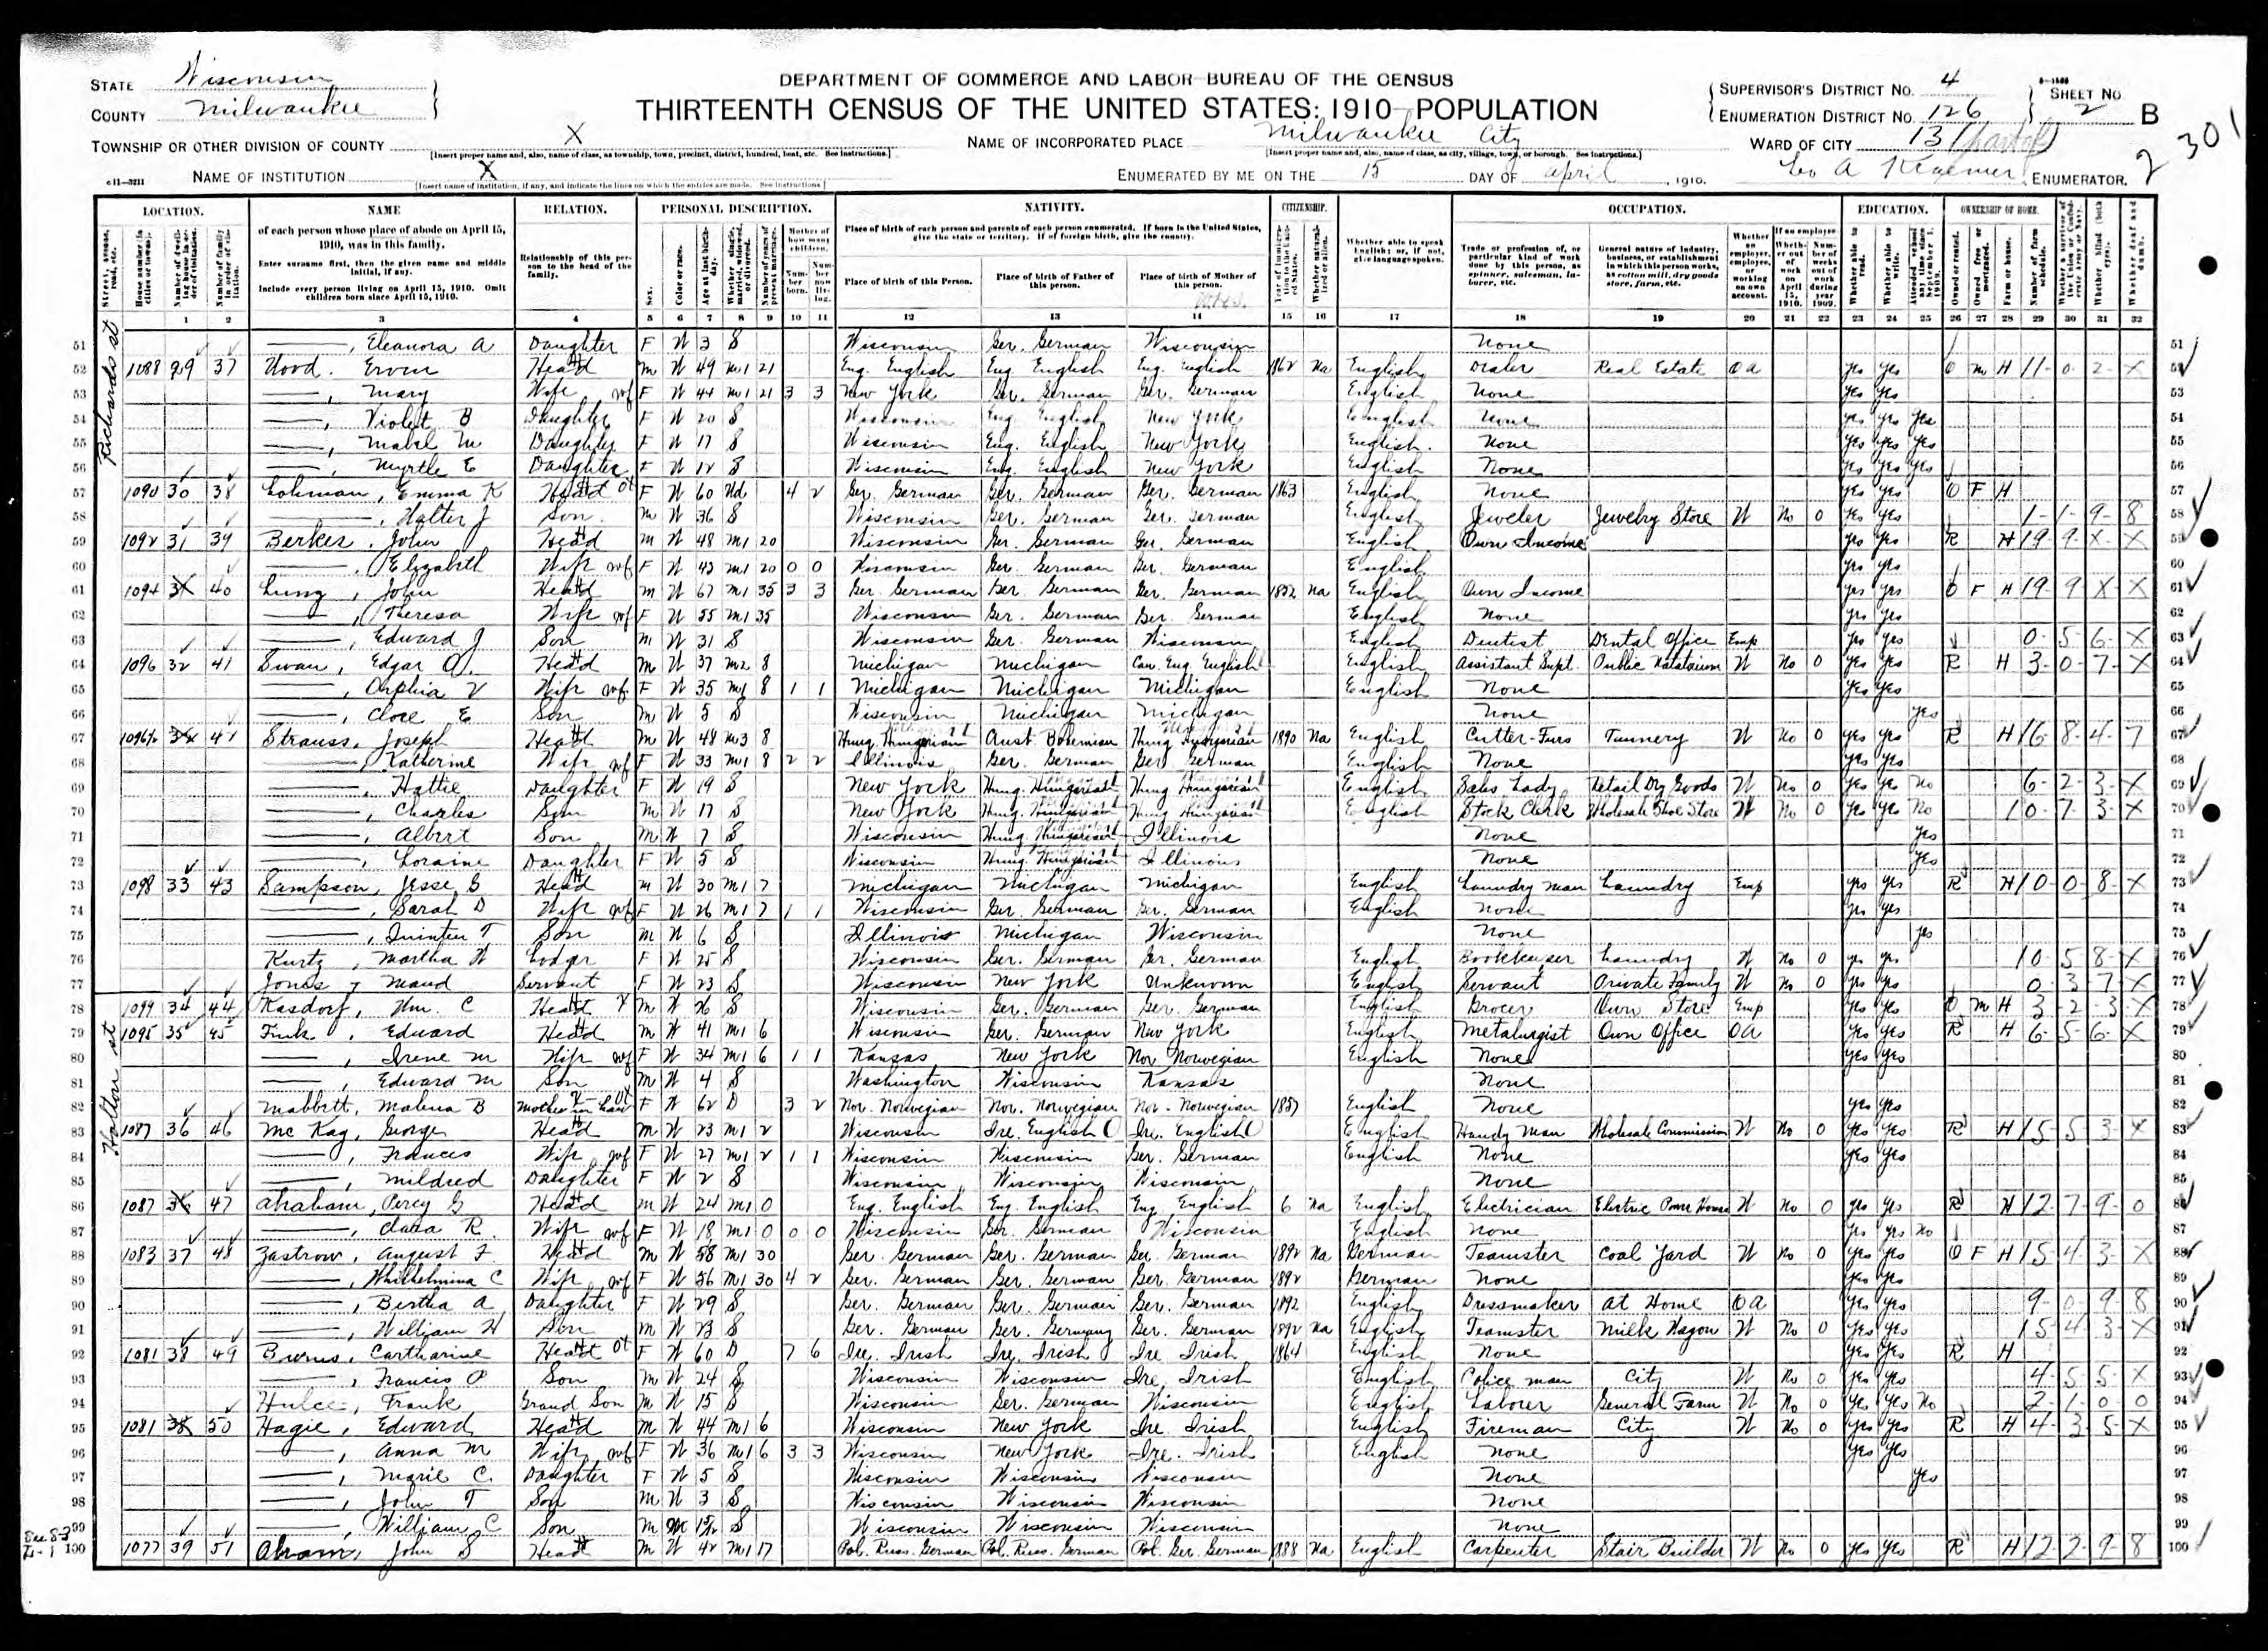 STATE Wisconsin
COUNTY Milwaukee
DEPARTMENT OF COMMERCE AND LABOR—BUREAU OF THE CENSUS
THIRTEENTH CENSUS OF THE UNITED STATES: 1910—POPULATION
SUPERVISOR'S DISTRICT No. 4
ENUMERATION DISTRICT No. 126
SHEET No. 2 B
TOWNSHIP OR OTHER DIVISION OF COUNTY X
NAME OF INCORPORATED PLACE Milwaukee City
WARD OF CITY 13 (part of)
2 301
NAME OF INSTITUTION X
ENUMERATED BY ME ON THE 15 DAY OF April, 1910.
Leo A Kraemer, ENUMERATOR.
LOCATION. NAME RELATION. PERSONAL DESCRIPTION. NATIVITY. CITIZENSHIP. OCCUPATION. EDUCATION. OWNERSHIP OF HOME.
of each person whose place of abode on April 15, 1910, was in this family.
Enter surname first, then the given name and middle initial, if any.
Include every person living on April 15, 1910. Omit children born since April 15, 1910.
Relationship of this person to the head of the family.
Place of birth of this Person. Place of birth of Father of this person. Place of birth of Mother of this person.
1 2 3 4 5 6 7 8 9 10 11 12 13 14 15 16 17 18 19 20 21 22 23 24 25 26 27 28 29 30 31 32
Richards st
51 ——, Eleanora A Daughter F W 3 S Wisconsin Ger. German Wisconsin None
52 1088 29 37 Hood. Ervin Head M W 49 M1 21 Eng. English Eng. English Eng. English 1862 Na English Dealer Real Estate OA Yes Yes O M H 11-0-2-X
53 ——, Mary Wife F W 44 M1 21 3 3 New York Ger. German Ger. German English None Yes Yes
54 ——, Violet B Daughter F W 20 S Wisconsin Eng English New York English None Yes Yes Yes
55 ——, Mabel M Daughter F W 17 S Wisconsin Eng. English New York English None Yes Yes Yes
56 ——, Myrtle E Daughter F W 12 S Wisconsin Eng. English New York English None Yes Yes Yes
57 1090 30 38 Lohman, Emma K Head F W 60 Wd 4 2 Ger. German Ger. German Ger. German 1863 English None Yes Yes O F H
58 ——, Walter J Son M W 36 S Wisconsin Ger. German Ger. German English Jeweler Jewelry Store W No 0 Yes Yes 1-1-9-8
59 1092 31 39 Berkes, John Head M W 48 M1 20 Wisconsin Ger. German Ger. German English Own Income Yes Yes R H 19-9-X-X
60 ——, Elizabeth Wife F W 43 M1 20 0 0 Wisconsin Ger. German Ger. German English Yes Yes
61 1094 40 Lung, John Head M W 67 M1 35 3 3 Ger. German Ger. German Ger. German 1852 Na English Own Income Yes Yes O F H 19-9 X-X
62 ——, Theresa Wife F W 55 M1 35 Wisconsin Ger. German Ger. German English None Yes Yes
63 ——, Edward J Son M W 31 S Wisconsin Ger. German Wisconsin English Dentist Dental Office Emp Yes Yes 0-5-6-X
64 1096 32 41 Swan, Edgar O. Head M W 37 M2 8 Michigan Michigan Can. Eng. English English Assistant Supt. Public Natatorium W No 0 Yes Yes R H 3-0-7-X
65 ——, Orphia V Wife F W 35 M1 8 1 1 Michigan Michigan Michigan English None Yes Yes
66 ——, E Son M W 5 S Wisconsin Michigan Michigan None Yes
67 1096½ 42 Strauss, Joseph Head M W 48 M3 8 Hung. Hungarian Aust. Bohemian Hung Hungarian 1890 Na English Cutter-Furs Tannery W No 0 Yes Yes R H 16-8-4-7
68 ——, Katherine Wife F W 33 M1 8 2 2 Illinois Ger. German Ger German English None Yes Yes
69 ——, Hattie Daughter F W 19 S New York Hung. Hungarian Hung Hungarian English Sales Lady Retail Dry Goods W No 0 Yes Yes No 6-2-3-X
70 ——, Charles Son M W 17 S New York Hung. Hungarian Hung Hungarian English Stock Clerk Wholesale Shoe Store W No 0 Yes Yes No 10-7-3-X
71 ——, Albert Son M W 7 S Wisconsin Hung. Hungarian Illinois None Yes
72 ——, Loraine Daughter F W 5 S Wisconsin Hung. Hungarian Illinois None Yes
73 1098 33 43 Sampson, Jesse G Head M W 30 M1 7 Michigan Michigan Michigan English Laundry man Laundry Emp Yes Yes R H 10-0-8-X
74 ——, Sarah D Wife F W 26 M1 7 1 1 Wisconsin Ger. German Ger. German English None Yes Yes
75 ——, Quinten T. Son M W 6 S Illinois Michigan Wisconsin None Yes
76 Kurtz, Martha W Lodger F W 25 S Wisconsin Ger. German Ger. German English Bookkeeper Laundry W No 0 Yes Yes 10-5-8-X
77 Jones, Maud Servant F W 23 S Wisconsin New York Unknown English Servant Private Family W No 0 Yes Yes 0-3-7-X
Holton st
78 1099 34 44 Kasdorf, Wm. C Head M W 26 S Wisconsin Ger. German Ger. German English Grocer Own Store Emp Yes Yes O M H 3-2-3-X
79 1095 35 45 Fink, Edward Head M W 41 M1 6 Wisconsin Ger. German New York English Metalurgist Own Office OA Yes Yes R H 6-5-6-X
80 ——, Irene M Wife F W 34 M1 6 1 1 Kansas New York Nor Norwegian English None Yes Yes
81 ——, Edward M Son M W 4 S Washington Wisconsin Kansas None
82 Mabbett, Malena B Mother in Law F W 62 D 3 2 Nor. Norwegian Nor. Norwegian Nor. Norwegian 1857 English None Yes Yes
83 1087 36 46 Mc Kay, George Head M W 23 M1 2 Wisconsin Ire. English Ire. English English Handy Man Wholesale Commission W No 0 Yes Yes R H 15-5-3-X
84 ——, Frances Wife F W 27 M1 2 1 1 Wisconsin Wisconsin Ger. German English None Yes Yes
85 ——, Mildred Daughter F W 2 S Wisconsin Wisconsin Wisconsin None
86 1087 47 Abraham, Percy G Head M W 24 M1 0 Eng. English Eng. English Eng English 6 Na English Electrician Electric Power House W No 0 Yes Yes R H 12-7-9-0
87 ——, Clara R. Wife F W 18 M1 0 0 0 Wisconsin Ger. German Wisconsin English None Yes Yes No
88 1083 37 48 Zastrow, August F. Head M W 58 M1 30 Ger. German Ger. German Ger. German 1892 Na German Teamster Coal Yard W No 0 Yes Yes O F H 15-4-3-X
89 ——, Whilhelmina C Wife F W 56 M1 30 4 2 Ger. German Ger. German Ger. German 1892 German None Yes Yes
90 ——, Bertha A Daughter F W 29 S Ger. German Ger. German Ger. German 1892 English Dressmaker At Home OA Yes Yes 9-0-9-8
91 ——, William H Son M W 23 S Ger. German Ger. Germany Ger. German 1892 Na English Teamster Milk Wagon W No 0 Yes Yes 15-4-3-X
92 1081 38 49 Burns, Cartharine Head F W 60 D 7 6 Ire. Irish Ire. Irish Ire Irish 1864 English None Yes Yes R H
93 ——, Francis P Son M W 24 S Wisconsin Wisconsin Ire, Irish English Police man City W No 0 Yes Yes 4-5-5-X
94 Hulce, Frank Grand Son M W 15 S Wisconsin Ger. German Wisconsin English Laborer General Farm W No 0 Yes Yes No 2-1-0-0
95 1081 50 Hagie, Edward Head M W 44 M1 6 Wisconsin New York Ire Irish English Fireman City W No 0 Yes Yes R H 4-3-5-X
96 ——, Anna M Wife F W 36 M1 6 3 3 Wisconsin New York Ire. Irish English None Yes Yes
97 ——, Marie C. Daughter F W 5 S Wisconsin Wisconsin Wisconsin None Yes
98 ——, John T Son M W 3 S Wisconsin Wisconsin Wisconsin None
99 ——, William C Son M W S Wisconsin Wisconsin Wisconsin None
100 1077 39 51 Abram, John S Head M W 42 M1 17 Pol. Russ. German Pol. Russ. German Pol. Ger. German 1888 Na English Carpenter Stair Builder W No 0 Yes Yes R H 12-2-9-8